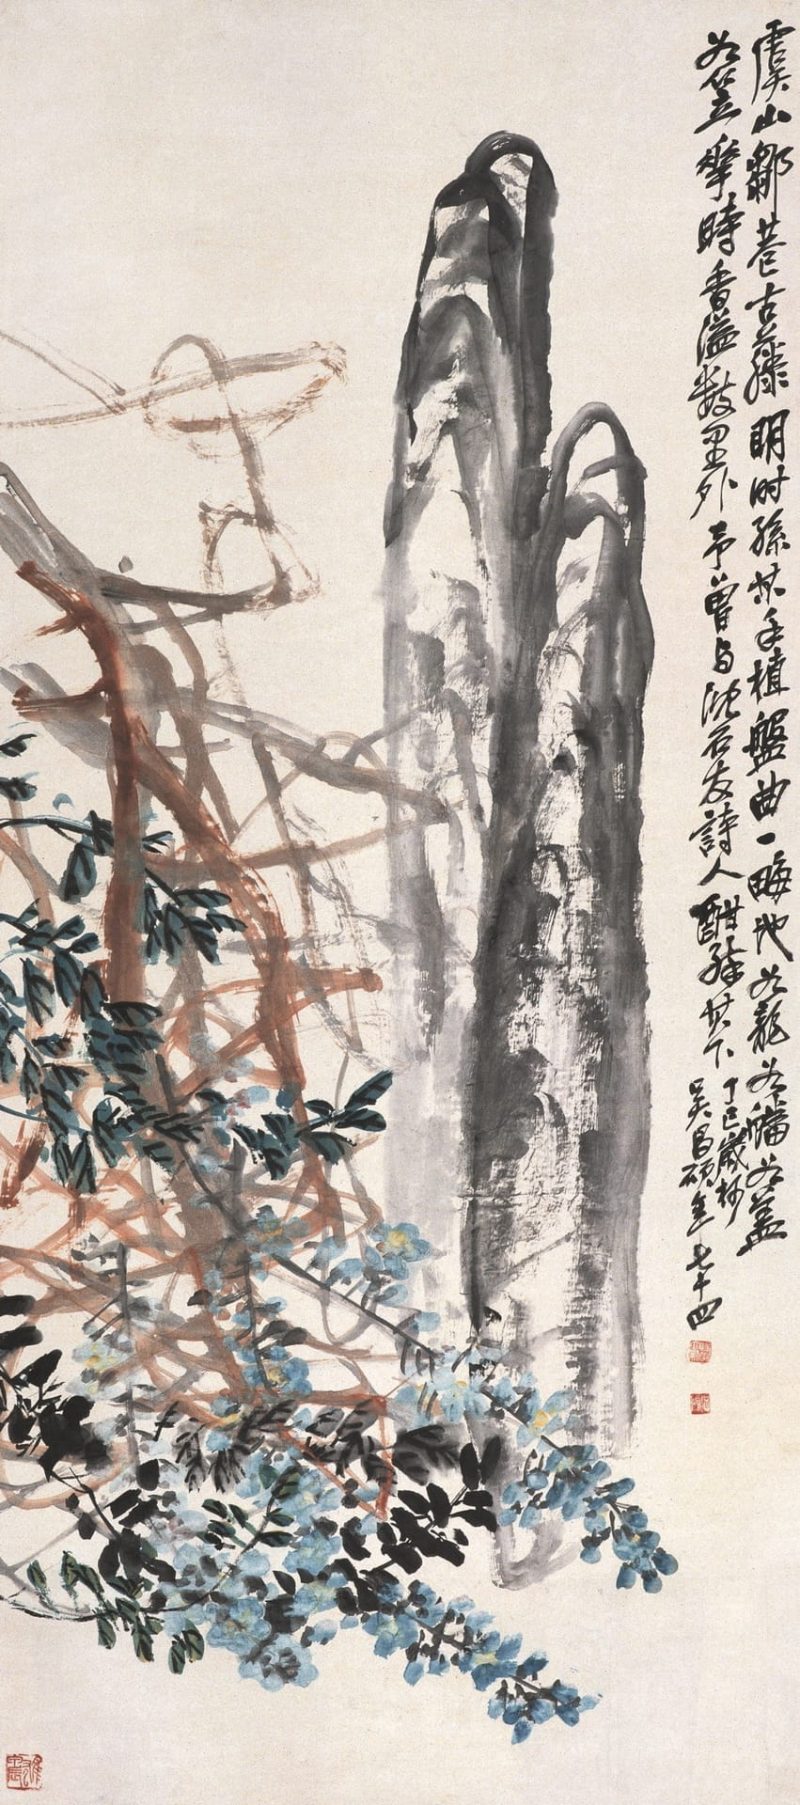 虞山鄒巷古藤明時孫某手植盤曲一畮地如龍如幡如蓋
如笠花時香溢數里外予曾與沈石友詩人酣醉其下
丁巳歲杪
吳昌碩年七十四